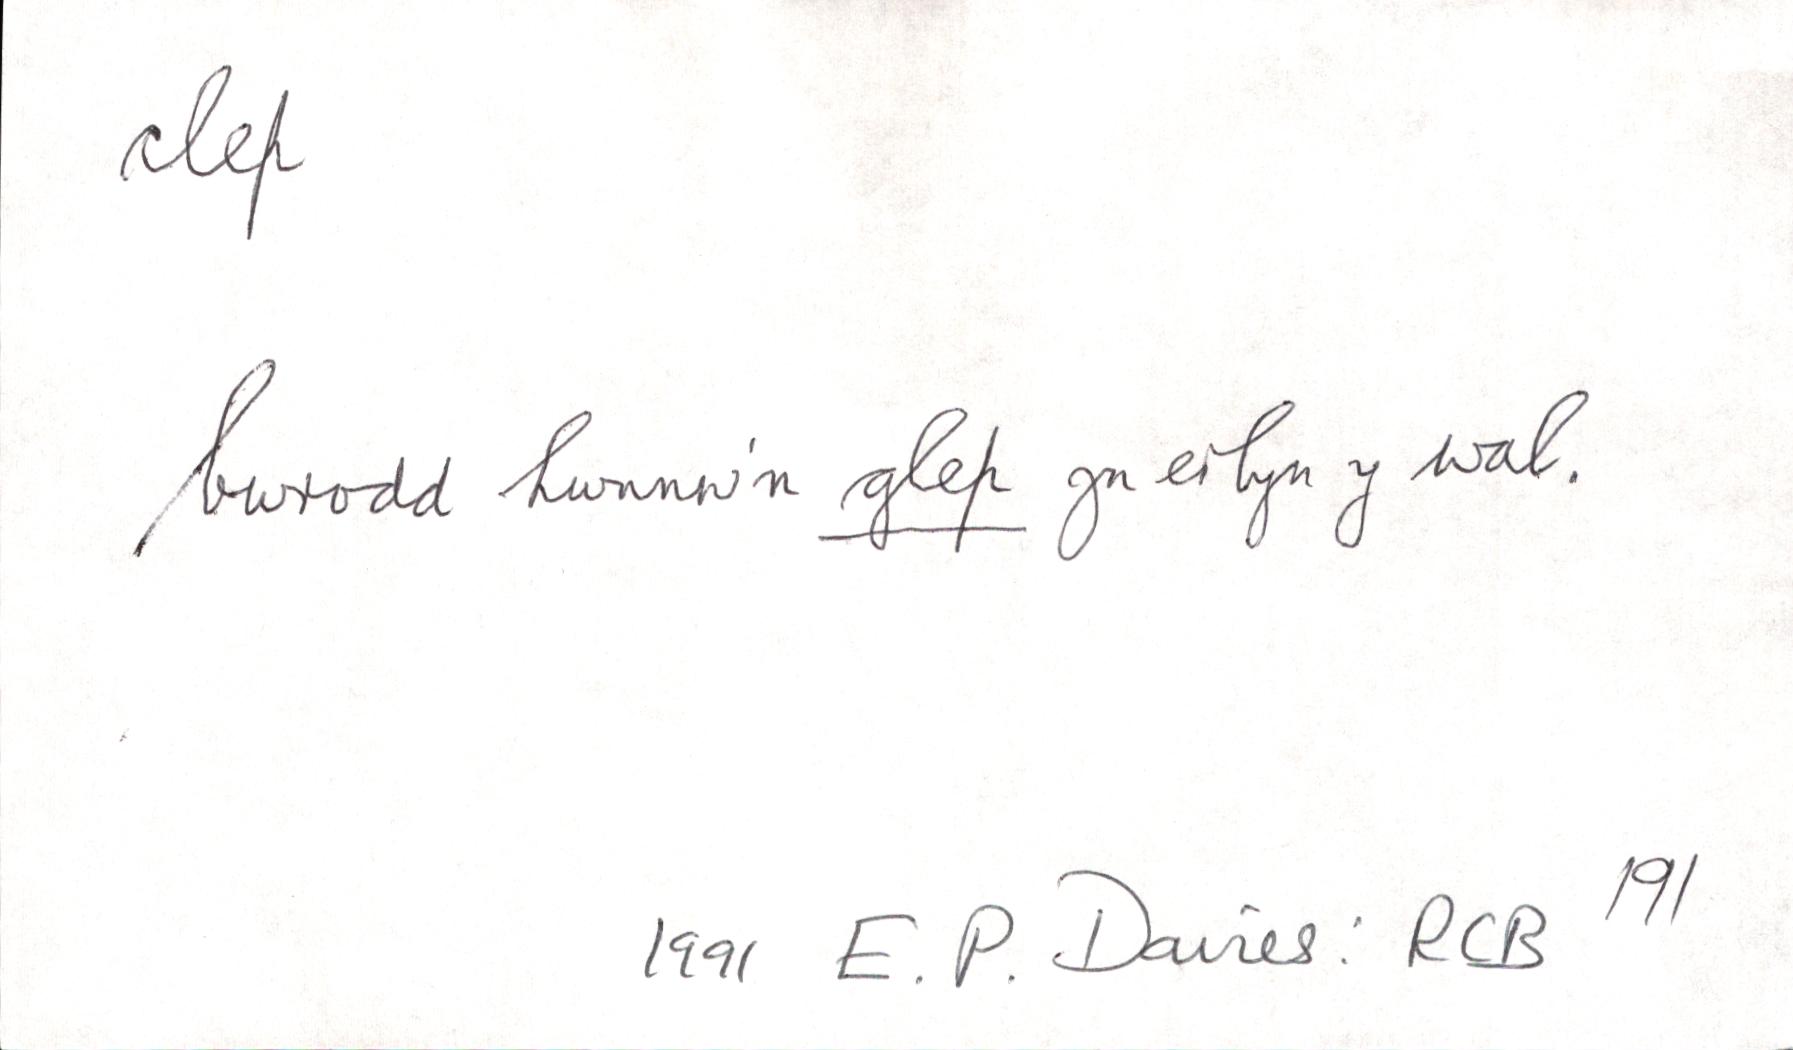 clep
bwrodd hwnnw'n glep yn erbyn y wal.
1991 E. P. Davies: RCB 191